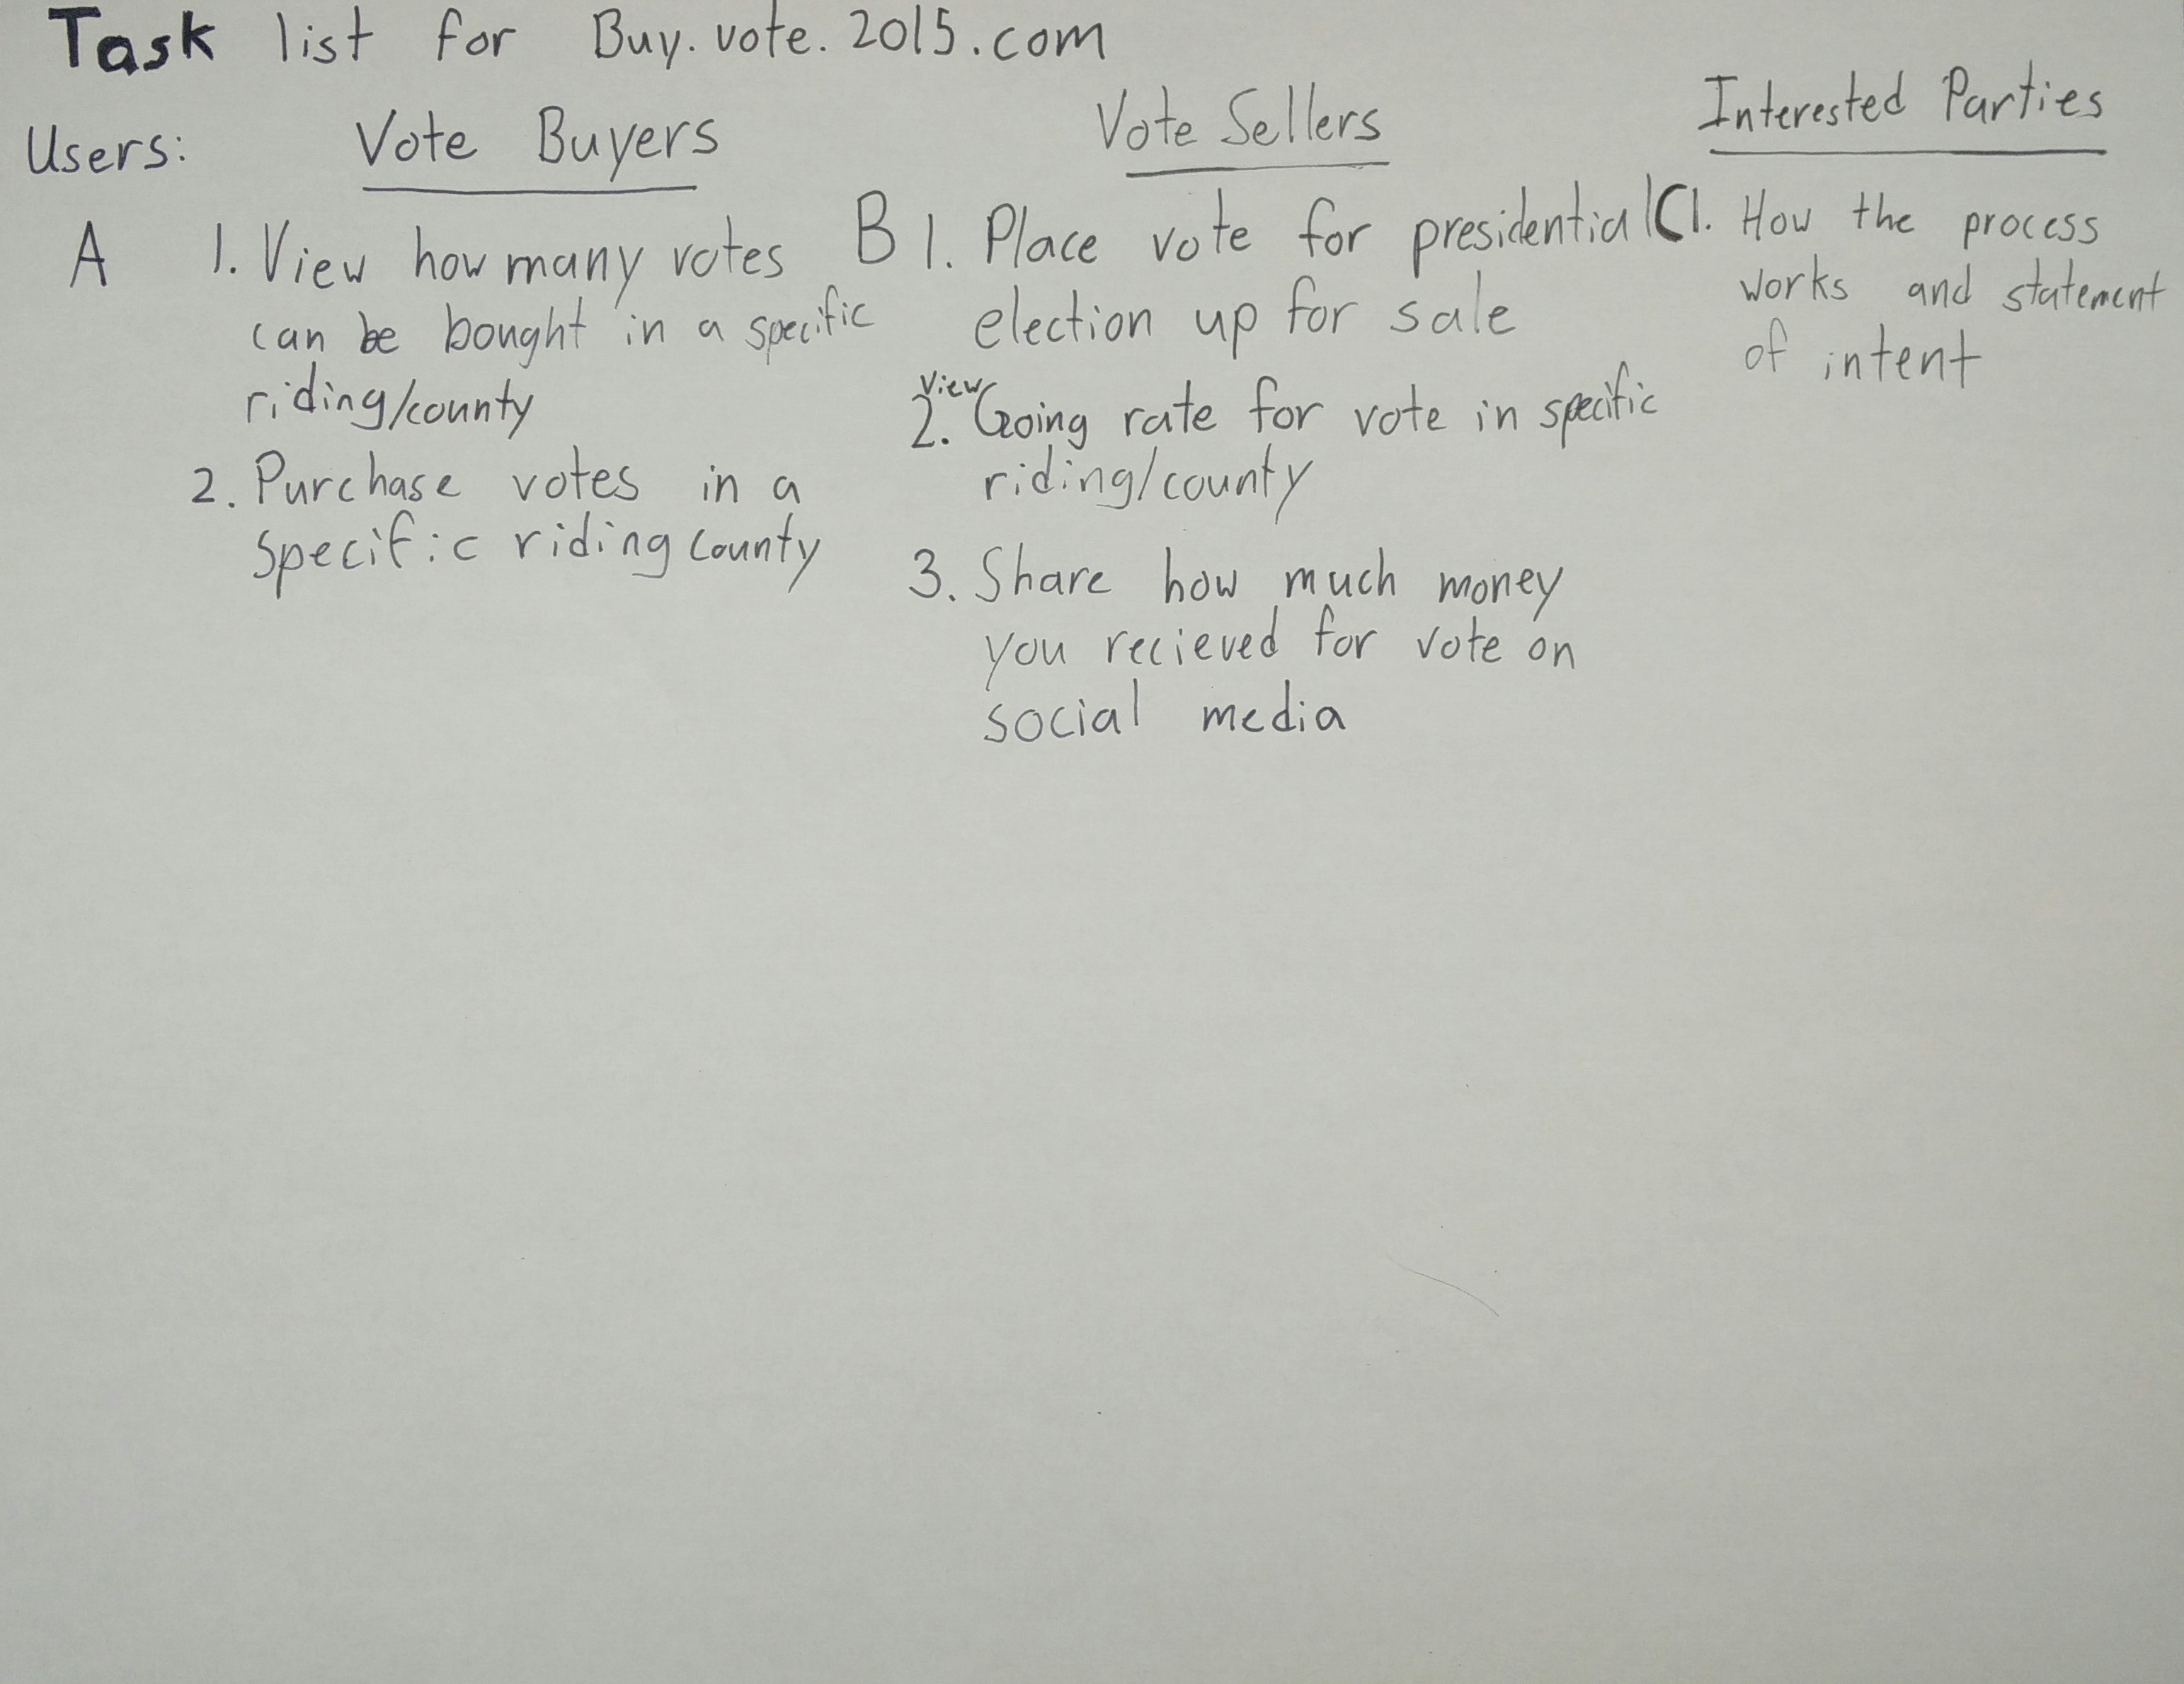 Task list for Buy.vote.2015.com
Users:
Vote Buyers
A 1. View how many votes
can be bought in a specific
riding/county
2. Purchase votes in a
specific riding county
Vote Sellers
B 1. Place vote for presidential
election up for sale
view
2. Going rate for vote in specific
riding/county
3. Share how much money
you recieved for vote on
social media
Interested Parties
C1. How the process
works and statement
of intent